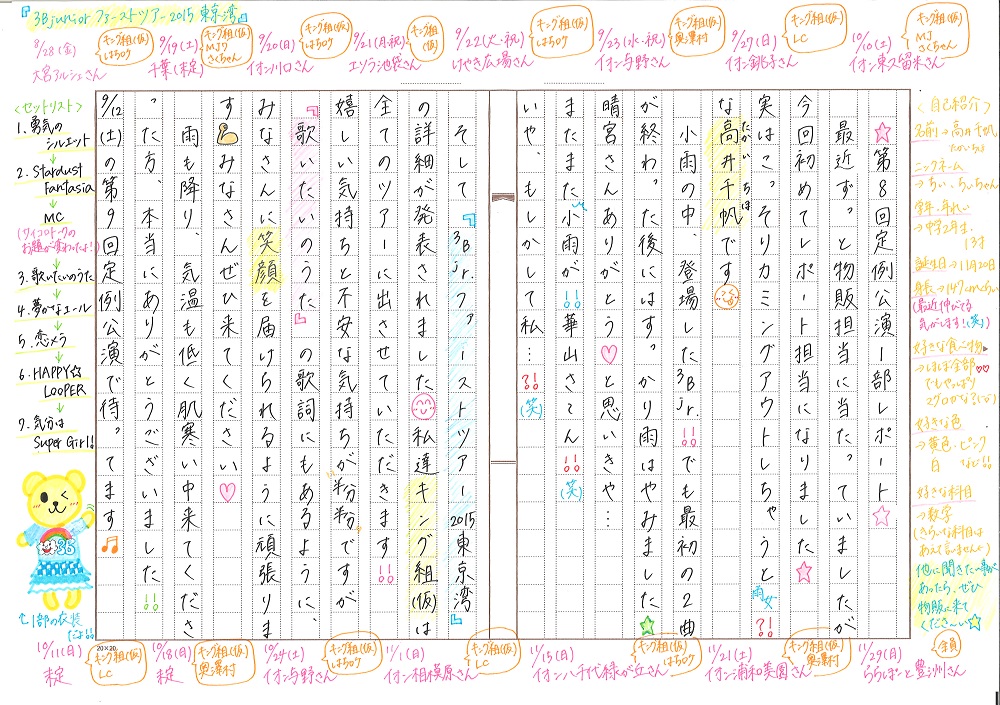 『3Bjunior ファーストツアー2015 東京湾』
8/28(金)
大宮アルシェさん
キング組(仮)
はちログ
9/19(土)
千葉(未定)
キング組(仮)
MJ
さくちゃん
9/20(日)
イオン川口さん
キング組(仮)
はちログ
9/21(月・祝)
エソラ池袋さん
キング組
(仮)
9/22(火・祝)
けやき広場さん
9/23(水・祝)
イオン与野さん
キング組(仮)
はちログ
9/27(日)
イオン銚子さん
キング組(仮)
奥澤村
10/10(土)
イオン東久留米さん
キング組(仮)
LC
キング組(仮)
MJ
さくちゃん
<自己紹介>
名前→高井千帆
たかいちほ
ニックネーム
→ちぃ、ちぃちゃん
学年・年れい
→中学2年生、
13才
誕生日→11月20日
身長→147cmくらい
(最近伸びてる
気がします!(笑)
好きな食べ物
→ほぼ全部♡♡
でもやっぱり
マグロかな?(笑)
好きな色
→黄色・ピンク
白 など!!
好きな科目
→数学
(きらいな科目は
あえて言いません)
他に聞きたい事が
あったら、ぜひ
物販に来て
くださーい☆
☆第8回定例公演一部レポート☆
最近ずっと物販担当に当たっていましたが
今回初めてレポート担当になりました☆
実はこっそりカミングアウトしちゃうと雨女?!
な高井千帆です
たかい ちほ
小雨の中、登場した3Bjr.!!でも最初の2曲
が終わった後にはすっかり雨はやみました☆
晴宮さんありがとう♡と思いきや…
またまた小雨が!!華山さてん!!(笑)
いや、もしかして私…?!(笑)
そして『3Bjr.ファーストツアー2015東京湾』
の詳細が発表されました 私達キング組(仮)は
全てのツアーに出させていただきます!!
嬉しい気持ちと不安な気持ちが半分半分ですが
『歌いたいのうた』の歌詞にもあるように
みなさんに笑顔を届けられるように頑張りま
す みなさんぜひ来てください♡
雨も降り、気温も低く肌寒い中来てくださ
った方、本当にありがとうございました!!
9/12(土)の第9回定例公演で待ってます♫
<セットリスト>
1.勇気の
シルエット
↓
2.Stardust
Fantasia
↓
MC
(サイコロトークの
お題が変わったよ!)
↓
3.歌いたいのうた
↓
4.夢かなエール
↓
5.恋メラ
↓
6.HAPPY☆
LOOPER
↓
7.気分は
Super Girl!!
3B
↑1部の衣装
だよ!!
20×20
10/11(日)
未定
キング組(仮)
LC
10/18(日)
未定
キング組(仮)
奥澤村
10/24(土)
イオン与野さん
キング組(仮)
はちログ
11/1(日)
イオン相模原さん
キング組(仮)
LC
11/15(日)
イオン八千代緑が丘さん
キング組(仮)
はちログ
11/21(土)
イオン浦和美園さん
キング組(仮)
奥澤村
11/29(日)
ららぽーと豊洲さん
全員